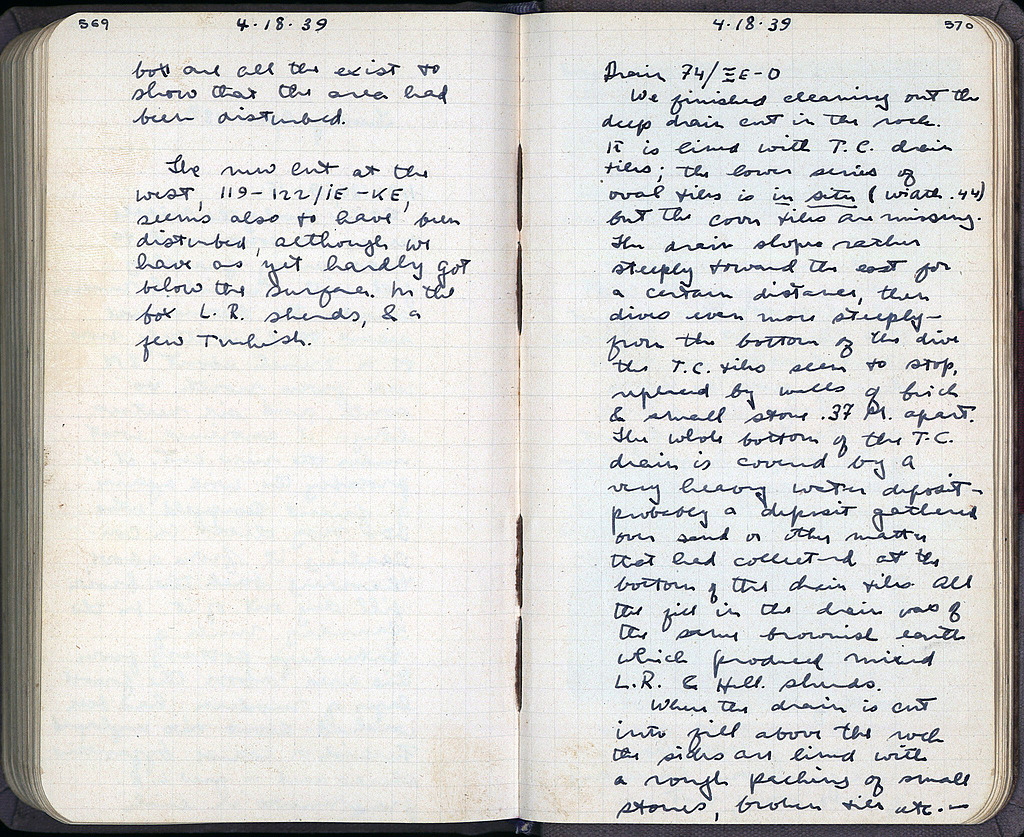 569
4·18·39
box are all the exist to
show that the area had
been disturbed.
The new cut at the
west, 119-122/ΙΕ-ΚΕ,
seems also to have been
disturbed, although we
have as yet hardly got
below the surface. In the
box L.R. sherds, & a
few Turkish.
4·18·39
570
Drain 74/ΞΕ-Ο
We finished cleaning out the
deep drain cut in the rock.
It is lined with T.C. drain
tiles; the lower series of
oval tiles is in situ (width .44)
but the cover tiles are missing.
The drain slopes rather
steeply toward the east for
a certain distance, then
dives even more steeply—
from the bottom of the dive
the T.C. tiles seem to stop,
replaced by walls of brick
& small stone .37 M. apart.
The whole bottom of the T.C.
drain is covered by a
very heavy water deposit-
probably a deposit gathered
over sand or other matter
that had collected at the
bottom of the drain tiles. All
the fill in the drain was of
the same brownish earth
which produced mixed
L.R. & Hell. sherds.
When the drain is cut
into fill above the rock
the sides are lined with
a rough packing of small
stones, broken tiles etc. —